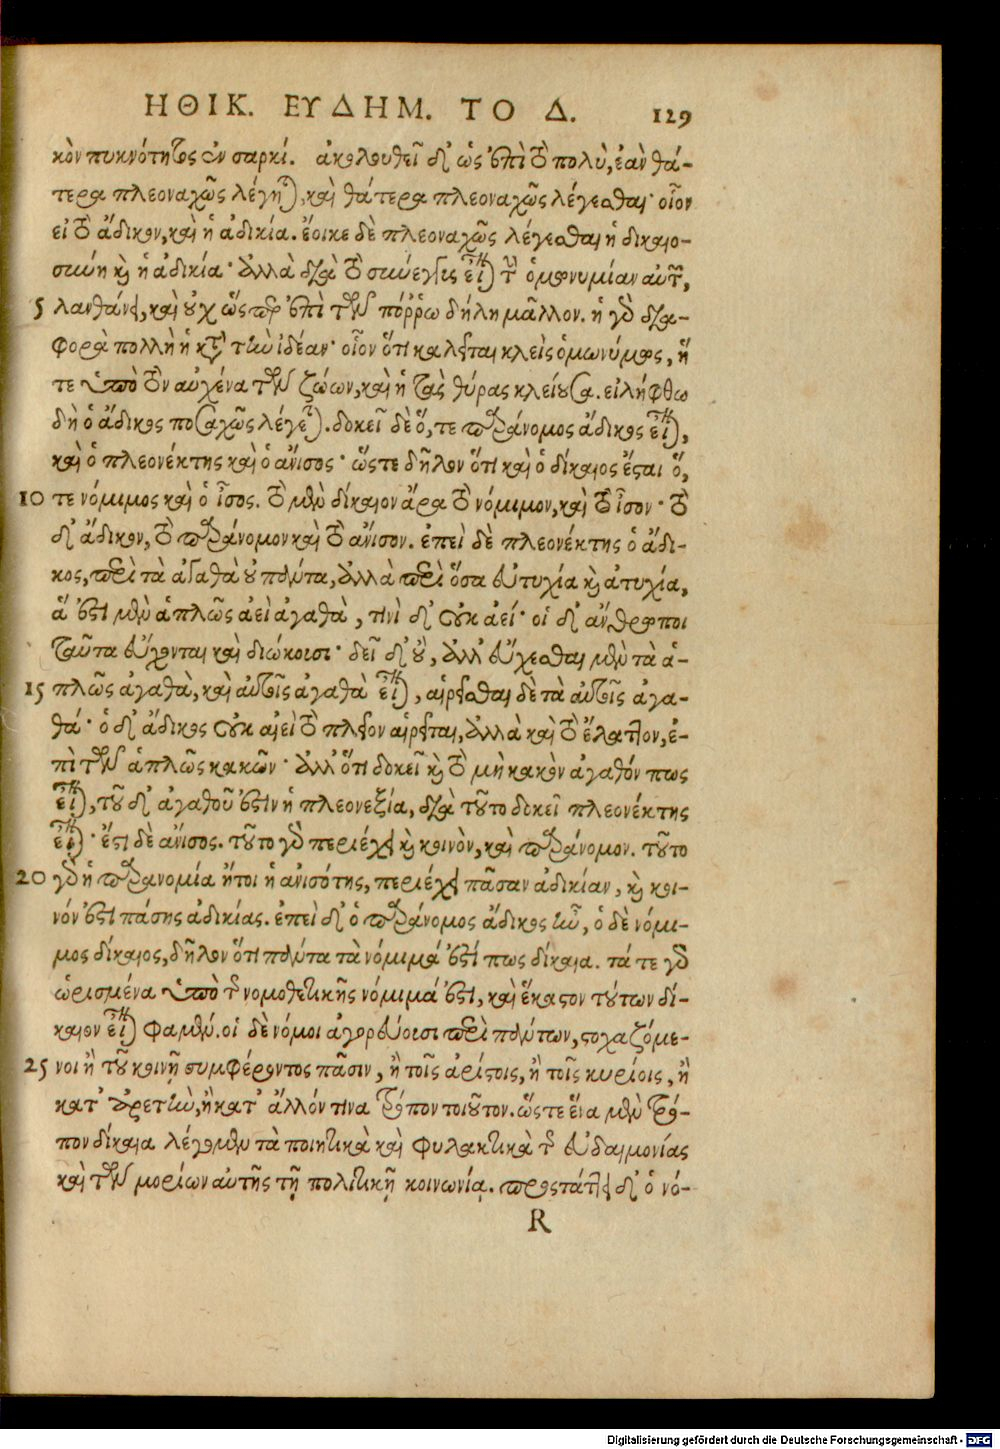 ΗΘΙΚ. ΕΥΔΗΜ. ΤΟ Δ. 129
κὸν πυκνότητος ἐν σαρκί. ἀκολουθεῖ δ' ὡς ἐπὶ τὸ πολὺ, ἐὰν θά-
τερα πλεοναχῶς λέγηται, καὶ θάτερα πλεοναχῶς λέγεσθαι· οἷον
εἰ τὸ ἄδικον, καὶ ἡ ἀδικία. ἔοικε δὲ πλεοναχῶς λέγεσθαι ἡ δικαιο-
σύνη καὶ ἡ ἀδικία· ἀλλὰ διὰ τὸ σύνεγγυς εἶναι τὴν ὁμωνυμίαν αὐτῶν,
5 λανθάνει, καὶ οὐχ ὥσπερ ἐπὶ τῶν πόῤῥω δήλη μᾶλλον. ἡ γὰρ δια-
φορὰ πολλὴ ἡ κατὰ τὴν ἰδέαν· οἷον ὅτι καλεῖται κλεὶς ὁμωνύμως, ἥ
τε ὑπὸ τὸν αὐχένα τῶν ζώων, καὶ ἡ τὰς θύρας κλείουσα. εἰλήφθω
δὴ ὁ ἄδικος ποσαχῶς λέγεται. δοκεῖ δὲ ὅ, τε παράνομος ἄδικος εἶναι,
καὶ ὁ πλεονέκτης καὶ ὁ ἄνισος· ὥστε δῆλον ὅτι καὶ ὁ δίκαιος ἔσται ὅ,
10 τε νόμιμος καὶ ὁ ἶσος. τὸ μὲν δίκαιον ἄρα τὸ νόμιμον, καὶ τὸ ἶσον· τὸ
δ' ἄδικον, τὸ παράνομον καὶ τὸ ἄνισον. ἐπεὶ δὲ πλεονέκτης ὁ ἄδι-
κος, περὶ τὰ ἀγαθὰ οὐ πάντα, ἀλλὰ περὶ ὅσα εὐτυχία καὶ ἀτυχία,
ἅ ἐστι μὲν ἁπλῶς ἀεὶ ἀγαθὰ, τινὶ δ' οὐκ ἀεί· οἱ δ' ἄνθρωποι
ταῦτα εὔχονται καὶ διώκουσι· δεῖ δ' οὔ, ἀλλ' εὔχεσθαι μὲν τὰ ἁ-
15 πλῶς ἀγαθὰ, καὶ αὐτοῖς ἀγαθὰ εἶναι, αἱρεῖσθαι δὲ τὰ αὐτοῖς ἀγα-
θά· ὁ δ' ἄδικος οὐκ αἰεὶ τὸ πλεῖον αἱρεῖται, ἀλλὰ καὶ τὸ ἔλαττον, ἐ-
πὶ τῶν ἁπλῶς κακῶν· ἀλλ' ὅτι δοκεῖ καὶ τὸ μὴ κακὸν ἀγαθόν πως
εἶναι, τοῦ δ' ἀγαθοῦ ἐστιν ἡ πλεονεξία, διὰ τοῦτο δοκεῖ πλεονέκτης
εἶναι· ἔστι δὲ ἄνισος. τοῦτο γὰρ περιέχει καὶ κοινὸν, καὶ παράνομον. τοῦτο
20 γὰρ ἡ παρανομία ἤτοι ἡ ἀνισότης, περιέχει πᾶσαν ἀδικίαν, καὶ κοι-
νόν ἐστι πάσης ἀδικίας. ἐπεὶ δ' ὁ παράνομος ἄδικος ἦν, ὁ δὲ νόμι-
μος δίκαιος, δῆλον ὅτι πάντα τὰ νόμιμά ἐστί πως δίκαια. τά τε γὰρ
ὡρισμένα ὑπὸ τῆς νομοθετικῆς νόμιμά ἐστι, καὶ ἕκαστον τούτων δί-
καιον εἶναι φαμέν. οἱ δὲ νόμοι ἀγορεύουσι περὶ πάντων, στοχαζόμε-
25 νοι ἢ τοῦ κοινῇ συμφέροντος πᾶσιν, ἢ τοῖς ἀρίστοις, ἢ τοῖς κυρίοις, ἢ
κατ' ἀρετὴν, ἢ κατ' ἄλλόν τινα τρόπον τοιοῦτον. ὥστε ἕνα μὲν τρό-
πον δίκαια λέγομεν τὰ ποιητικὰ καὶ φυλακτικὰ τῆς εὐδαιμονίας
καὶ τῶν μορίων αὐτῆς τῇ πολιτικῇ κοινωνίᾳ. προστάττει δ' ὁ νό-
R
Digitalisierung gefördert durch die Deutsche Forschungsgemeinschaft - DFG